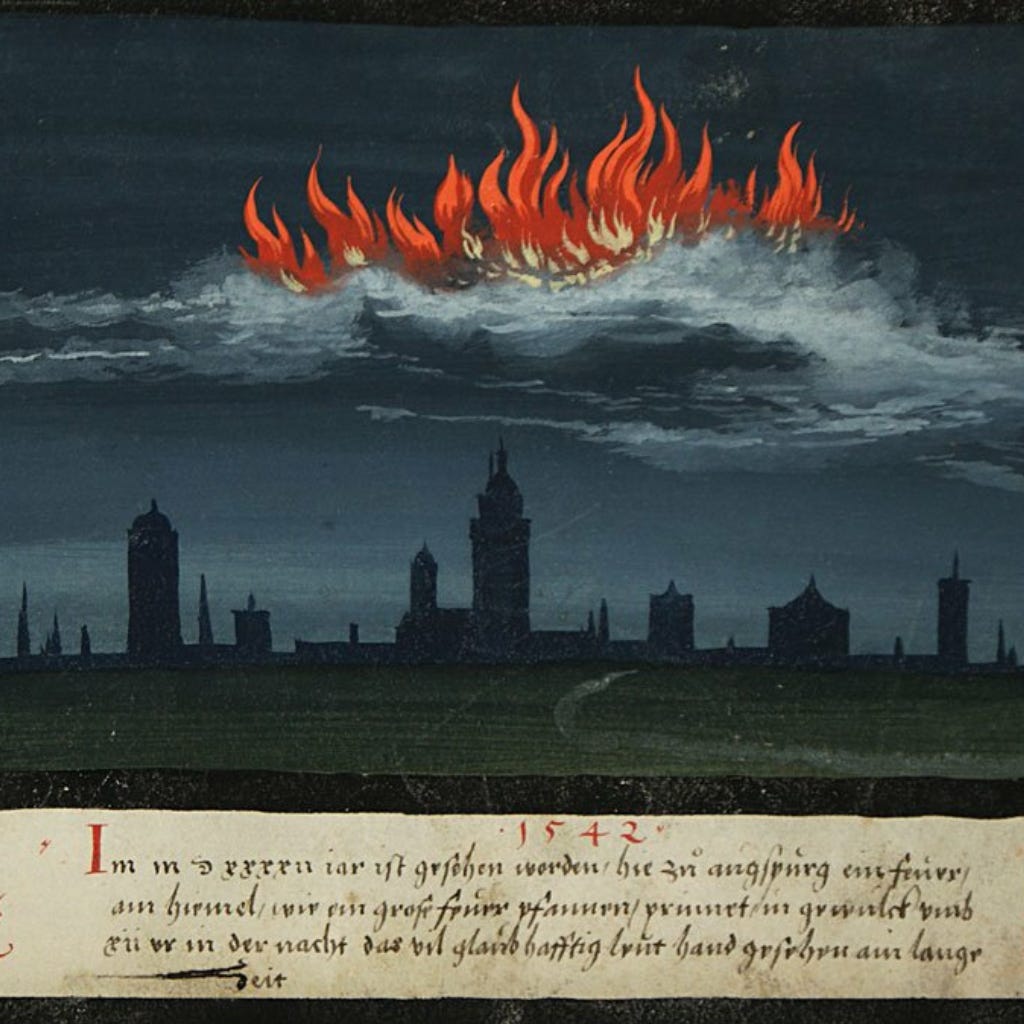 ·1542·
Im m d xxxxii iar ist gesehen worden / hie zů augspurg ein feüer /
am himel / wie ein grose feüer pfannen / prinnet / in gewülck umb
xii ur in der nacht das vil glaubhafftig leüt hand gesehen ain lange
Zeit